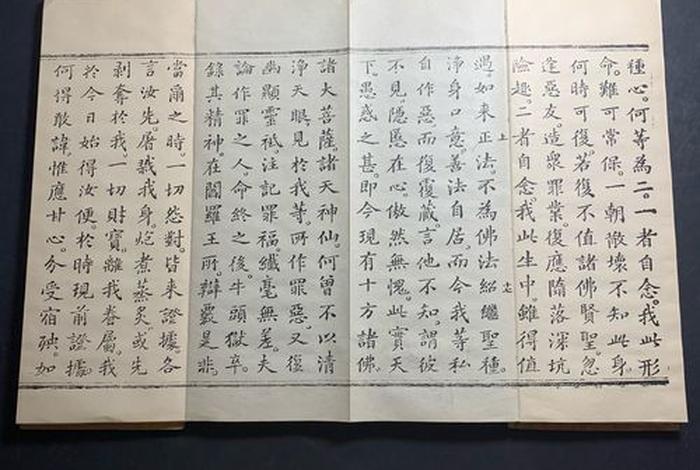 種心。何等為二。一者自念。我此形
命。難可常保。一朝散壞不知此身。
何時可復。若復不值諸佛賢聖。忽
逢惡友。造眾罪業。復應墮落深坑
險趣。二者自念。我此生中。雖得值
上
遇。如來正法。不為佛法紹繼聖種。
淨身口意。善法自居。而今我等私
自作惡而復覆藏。言他不知。謂彼
不見。隱慝在心。傲然無愧。此實天
下。愚惑之甚。即今現有十方諸佛。
諸大菩薩。諸天神仙。何曾不以清
淨天眼。見於我等。所作罪惡。又復
幽顯靈祇。注記罪福。纖毫無差。夫
論作罪之人。命終之後。牛頭獄卒。
錄其精神。在閻羅王所。辯覈是非。
當爾之時。一切怨對。皆來證據。各
言汝先。屠戮我身。炮煮蒸炙。或先
剝奪於我。一切財寶。離我眷屬。我
於今日始得汝便。於時現前證據。
何得敢諱。惟應甘心。分受宿殃。如